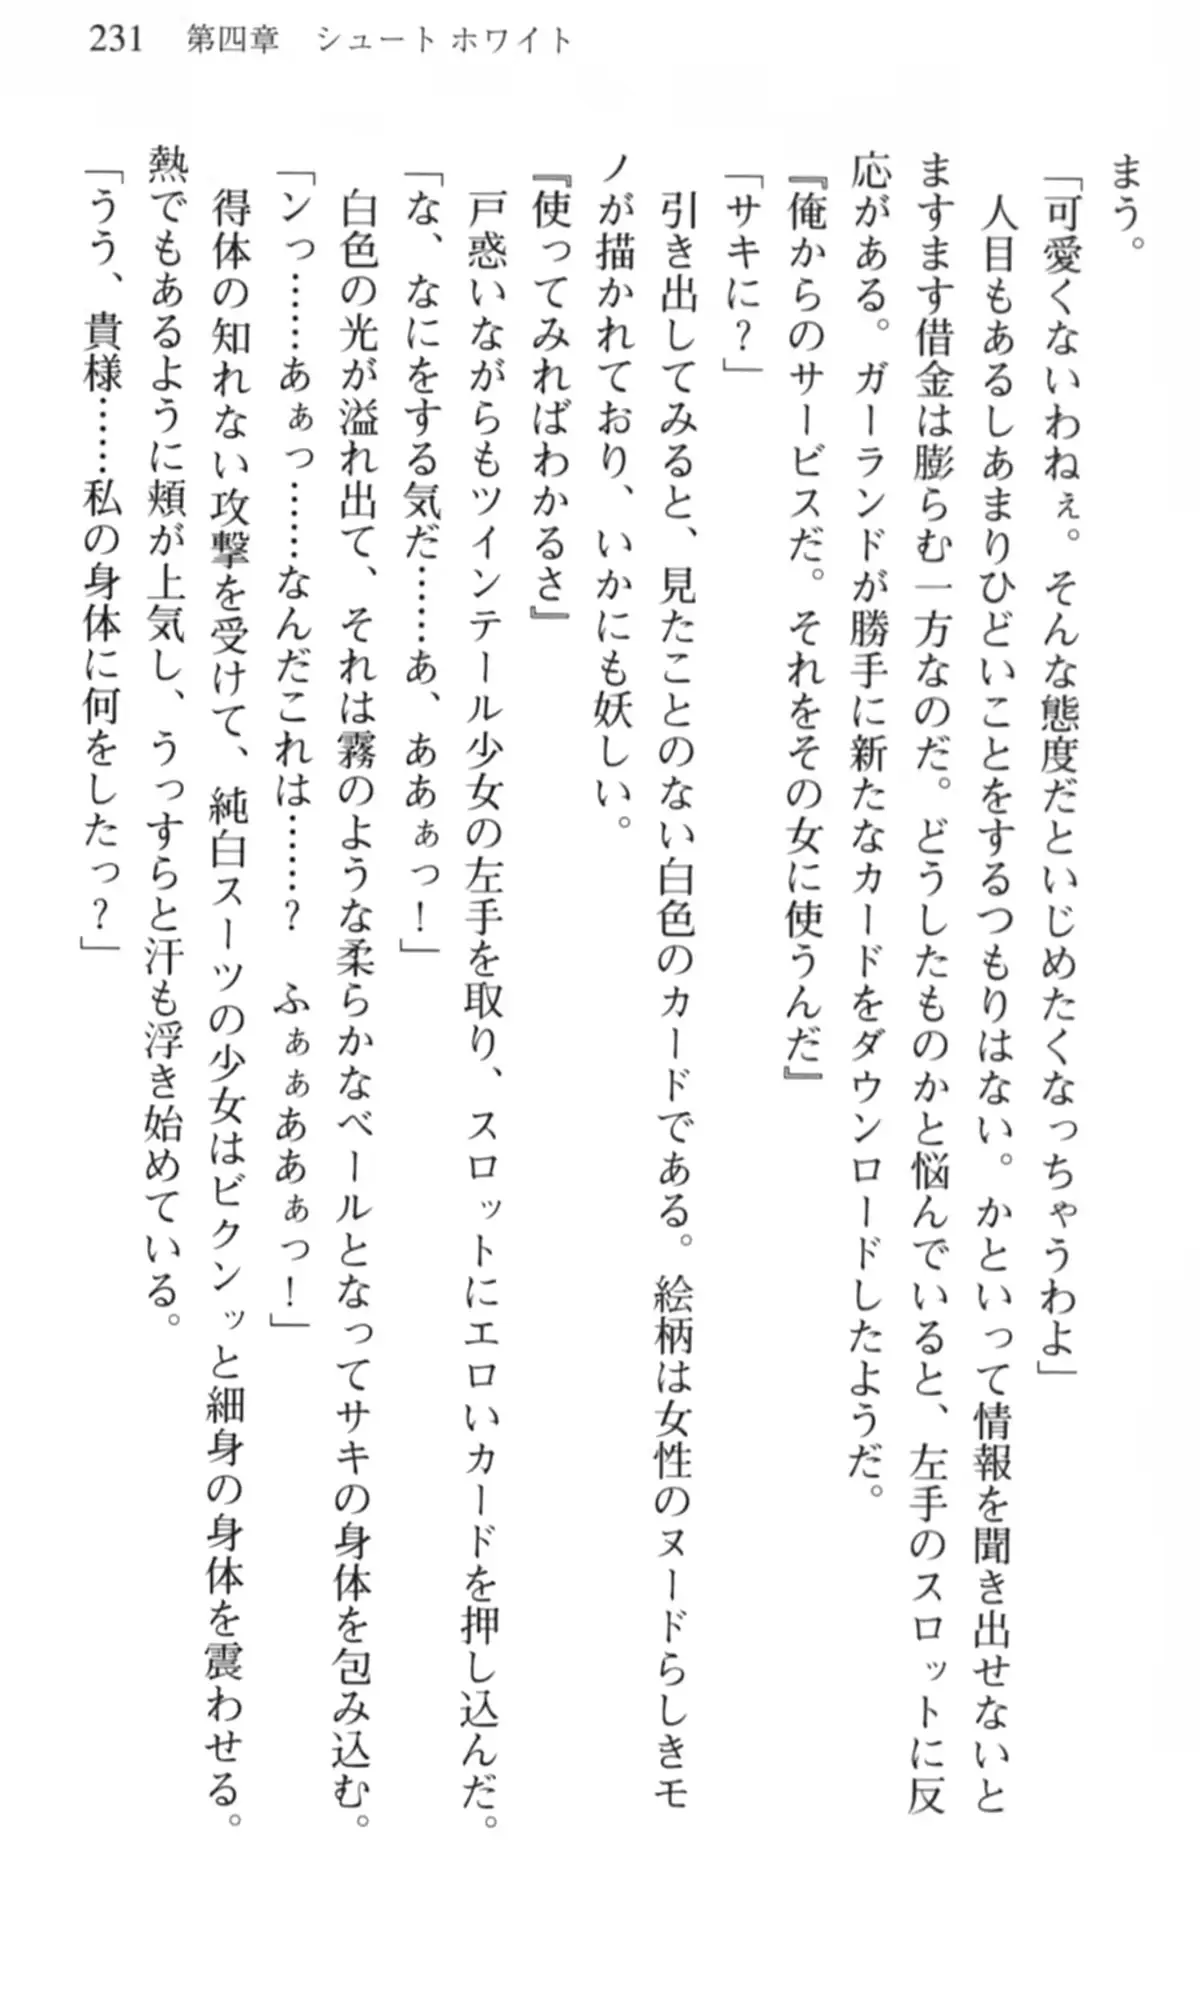 231 第四章 シュート ホワイト
まう。
「可愛くないわねぇ。そんな態度だといじめたくなっちゃうわよ」
人目もあるしあまりひどいことをするつもりはない。かといって情報を聞き出せないと
ますます借金は膨らむ一方なのだ。どうしたものかと悩んでいると、左手のスロットに反
応がある。ガーランドが勝手に新たなカードをダウンロードしたようだ。
『俺からのサービスだ。それをその女に使うんだ』
「サキに？」
引き出してみると、見たことのない白色のカードである。絵柄は女性のヌードらしきモ
ノが描かれており、いかにも妖しい。
『使ってみればわかるさ』
戸惑いながらもツインテール少女の左手を取り、スロットにエロいカードを押し込んだ。
「な、なにをする気だ……あ、ああぁっ！」
白色の光が溢れ出て、それは霧のような柔らかなベールとなってサキの身体を包み込む。
「ンっ……あぁっ……なんだこれは……？　ふぁぁああぁっ！」
得体の知れない攻撃を受けて、純白スーツの少女はビクンッと細身の身体を震わせる。
熱でもあるように頬が上気し、うっすらと汗も浮き始めている。
「うう、貴様……私の身体に何をしたっ？」